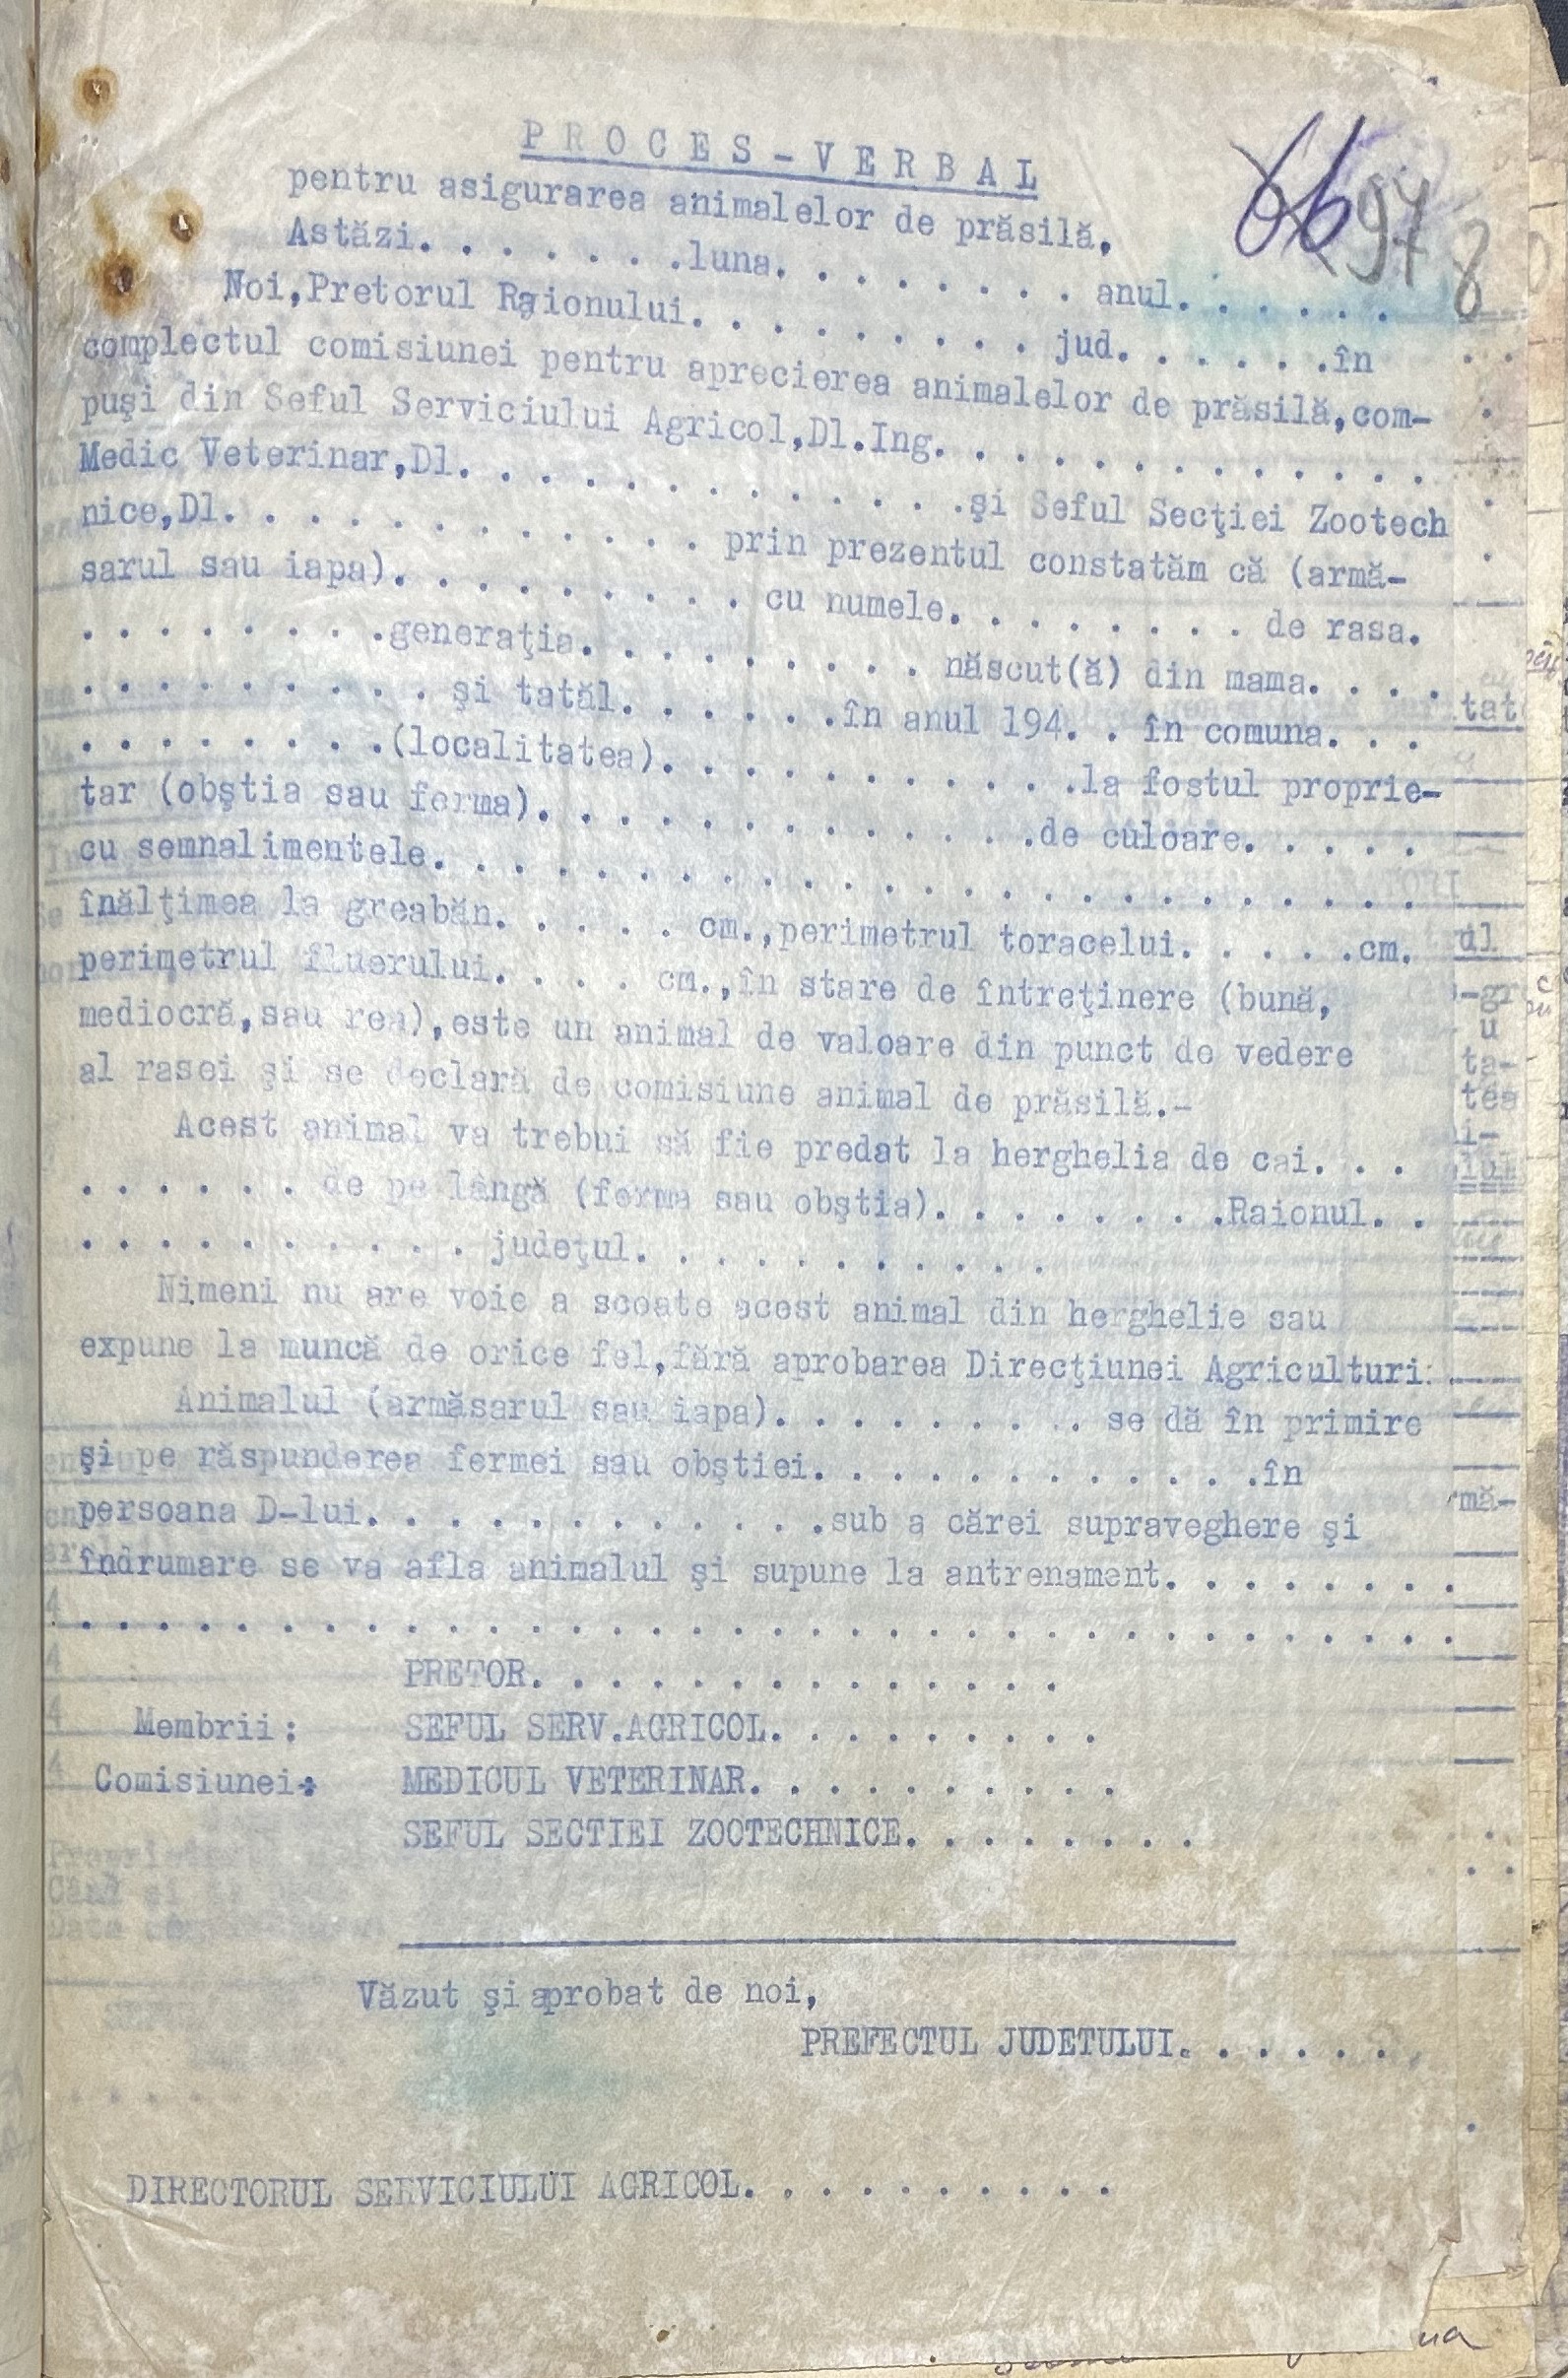 66 97 8
PROCES-VERBAL
pentru asigurarea animalelor de prăsilă.
Astăzi. . . . . . . .luna. . . . . . . . anul. . . . . .
Noi,Pretorul Raionului. . . . . . . . . jud. . . . . .în
complectul comisiunei pentru aprecierea animalelor de prăsilă,com-
puşi din Seful Serviciului Agricol,Dl.Ing. . . . . . . . . . . . .
Medic Veterinar,Dl. . . . . . . . . . . . . .şi Seful Secţiei Zootech
nice,Dl. . . . . . . . . . . . prin prezentul constatăm că (armă-
sarul sau iapa). . . . . . . . . cu numele. . . . . . . . de rasa.
. . . . . . . .generaţia. . . . . . . . . născut(ă) din mama. . . .
. . . . . . . . . şi tatăl. . . . . .în anul 194. . în comuna. . .
. . . . . . . .(localitatea). . . . . . . . . . .la fostul proprie-
tar (obştia sau ferma). . . . . . . . . . . . .de culoare. . . . .
cu semnalimentele. . . . . . . . . . . . . . . . . . . . . . . . .
înălţimea la greabăn. . . . . cm.,perimetrul toracelui. . . . .cm.
perimetrul fluerului. . . . cm.,în stare de întreţinere (bună,
mediocră,sau rea),este un animal de valoare din punct de vedere
al rasei şi se declară de comisiune animal de prăsilă.-
Acest animal va trebui să fie predat la herghelia de cai. . .
. . . . . . de pe lângă (ferma sau obştia). . . . . . . .Raionul. .
. . . . . . . . . . judeţul. . . . . . . . . . .
Nimeni nu are voie a scoate acest animal din herghelie sau
expune la muncă de orice fel,fără aprobarea Direcţiunei Agriculturi
Animalul (armăsarul sau iapa). . . . . . . . . se dă în primire
şi pe răspunderea fermei sau obştiei. . . . . . . . . . . .în
persoana D-lui. . . . . . . . . . . .sub a cărei supraveghere şi
îndrumare se va afla animalul şi supune la antrenament. . . . . . . .
. . . . . . . . . . . . . . . . . . . . . . . . . . . . . . . . . .
PRETOR. . . . . . . . . . . . . .
Membrii: SEFUL SERV.AGRICOL. . . . . . . . .
Comisiunei: MEDICUL VETERINAR. . . . . . . . . .
SEFUL SECTIEI ZOOTECHNICE. . . . . . . .
Văzut şi aprobat de noi,
PREFECTUL JUDETULUI. . . . . . .
DIRECTORUL SERVICIULUI AGRICOL. . . . . . . . . .